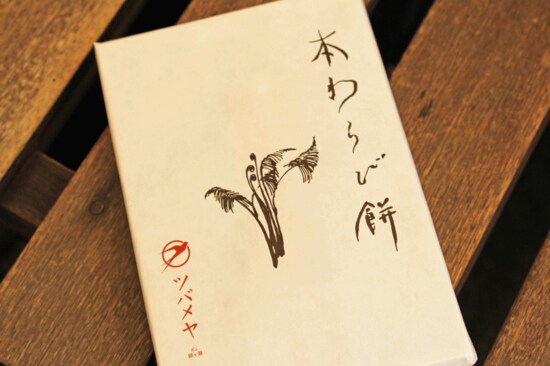 本わらび餅
ツバメヤ